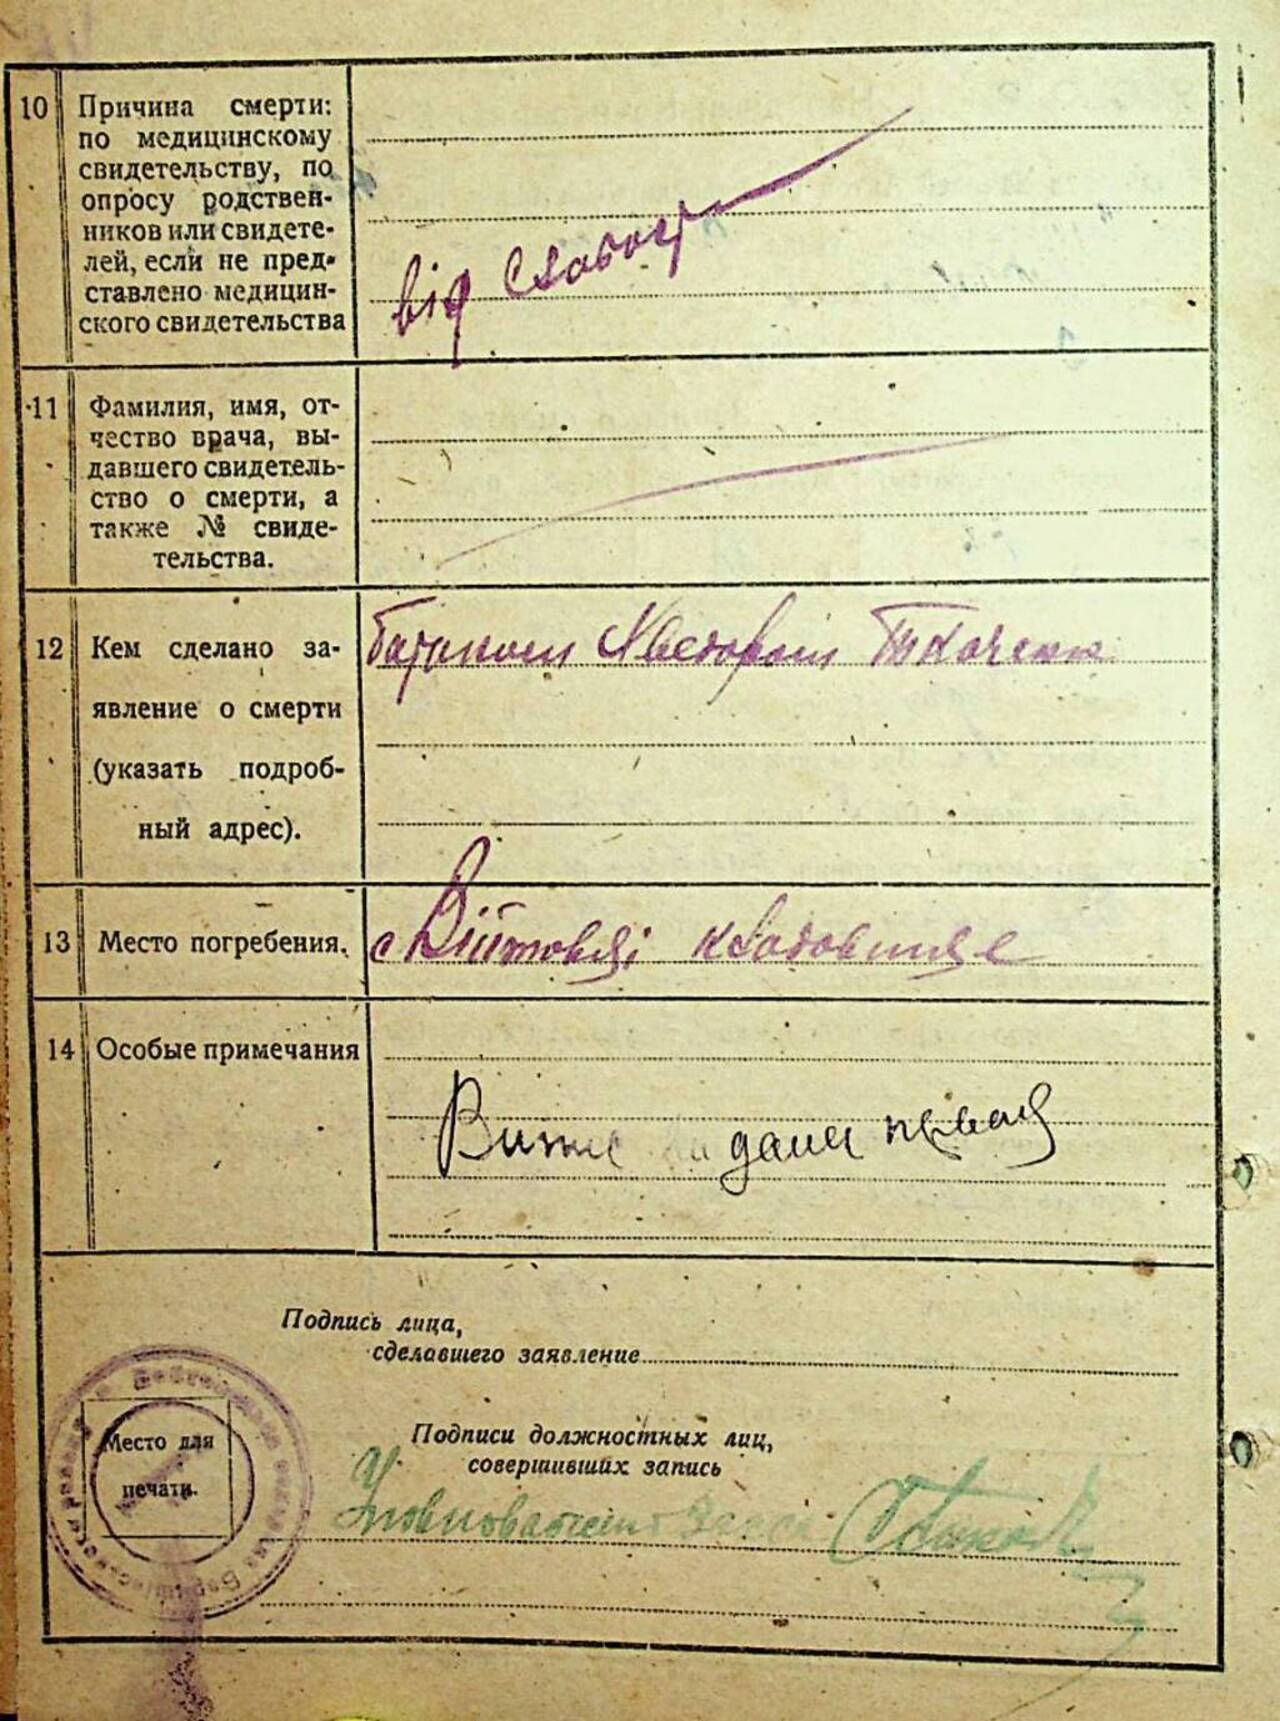 10
Причина смерти:
по медицинскому
свидетельству, по
опросу родствен-
ников или свидете-
лей, если не пред-
ставлено медицин-
ского свидетельства
від слабост
11
Фамилия, имя, от-
чество врача, вы-
давшего свидетель-
ство о смерти, а
также № свиде-
тельства.
12
Кем сделано за-
явление о смерти
(указать подроб-
ный адрес).
Батьком Ткаченко
13
Место погребения.
с Війтовці кладовище
14
Особые примечания
дана
Подпись лица,
сделавшего заявление
Подписи должностных лиц,
совершивших запись
Место для
печати.
Уповноважений